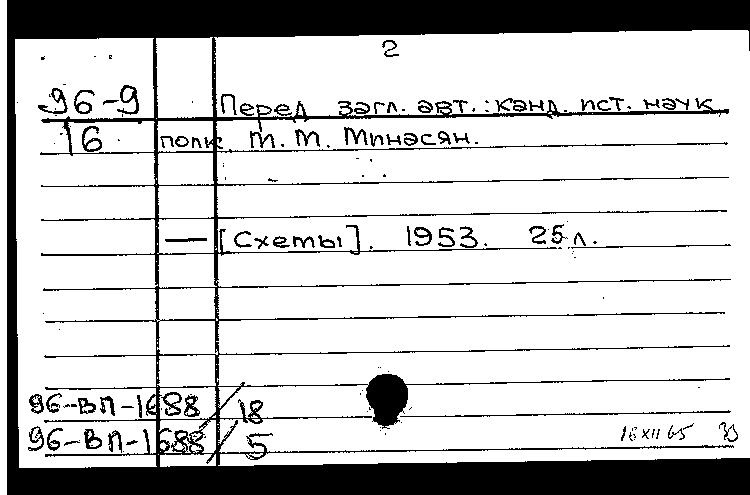 2
96-9 Перед загл. авт.: канд. ист. наук
16 полк. М. М. Минасян.
— [Схемы]. 1953. 25 л.
96-ВП-1688/18
96-ВП-1688/5
16 XII 65